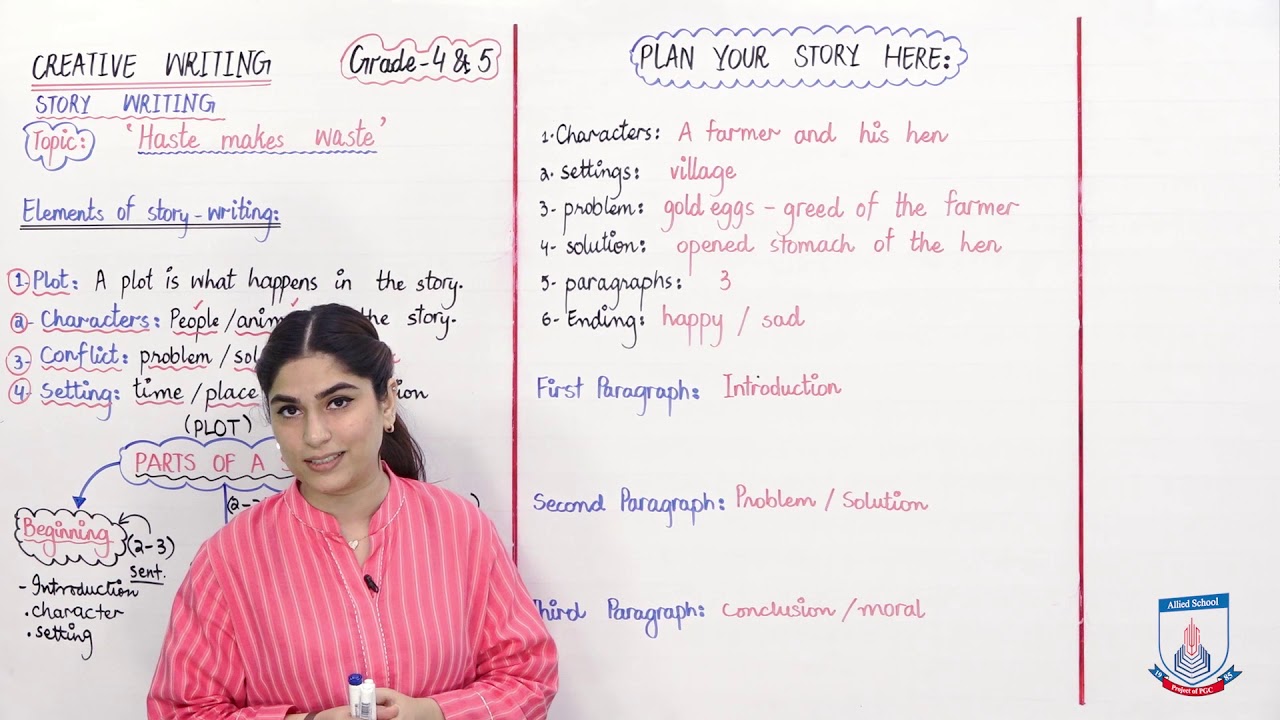 CREATIVE WRITING
Grade-4 & 5
STORY WRITING
Topic: 'Haste makes waste'
Elements of story-writing:
1. Plot: A plot is what happens in the story.
2- Characters: People / the story.
3- Conflict: problem /
4. Setting: time / place
(PLOT)
PARTS OF A
Beginning
(2-3)
sent.
- Introduction
. character
. setting
PLAN YOUR STORY HERE:
1. Characters: A farmer and his hen
2. settings: village
3- problem: gold eggs - greed of the farmer
4- solution: opened stomach of the hen
5- paragraphs: 3
6- Ending: happy / sad
First Paragraph: Introduction
Second Paragraph: Problem / Solution
Third Paragraph: Conclusion / moral
Allied School
19 85
Project of PGC